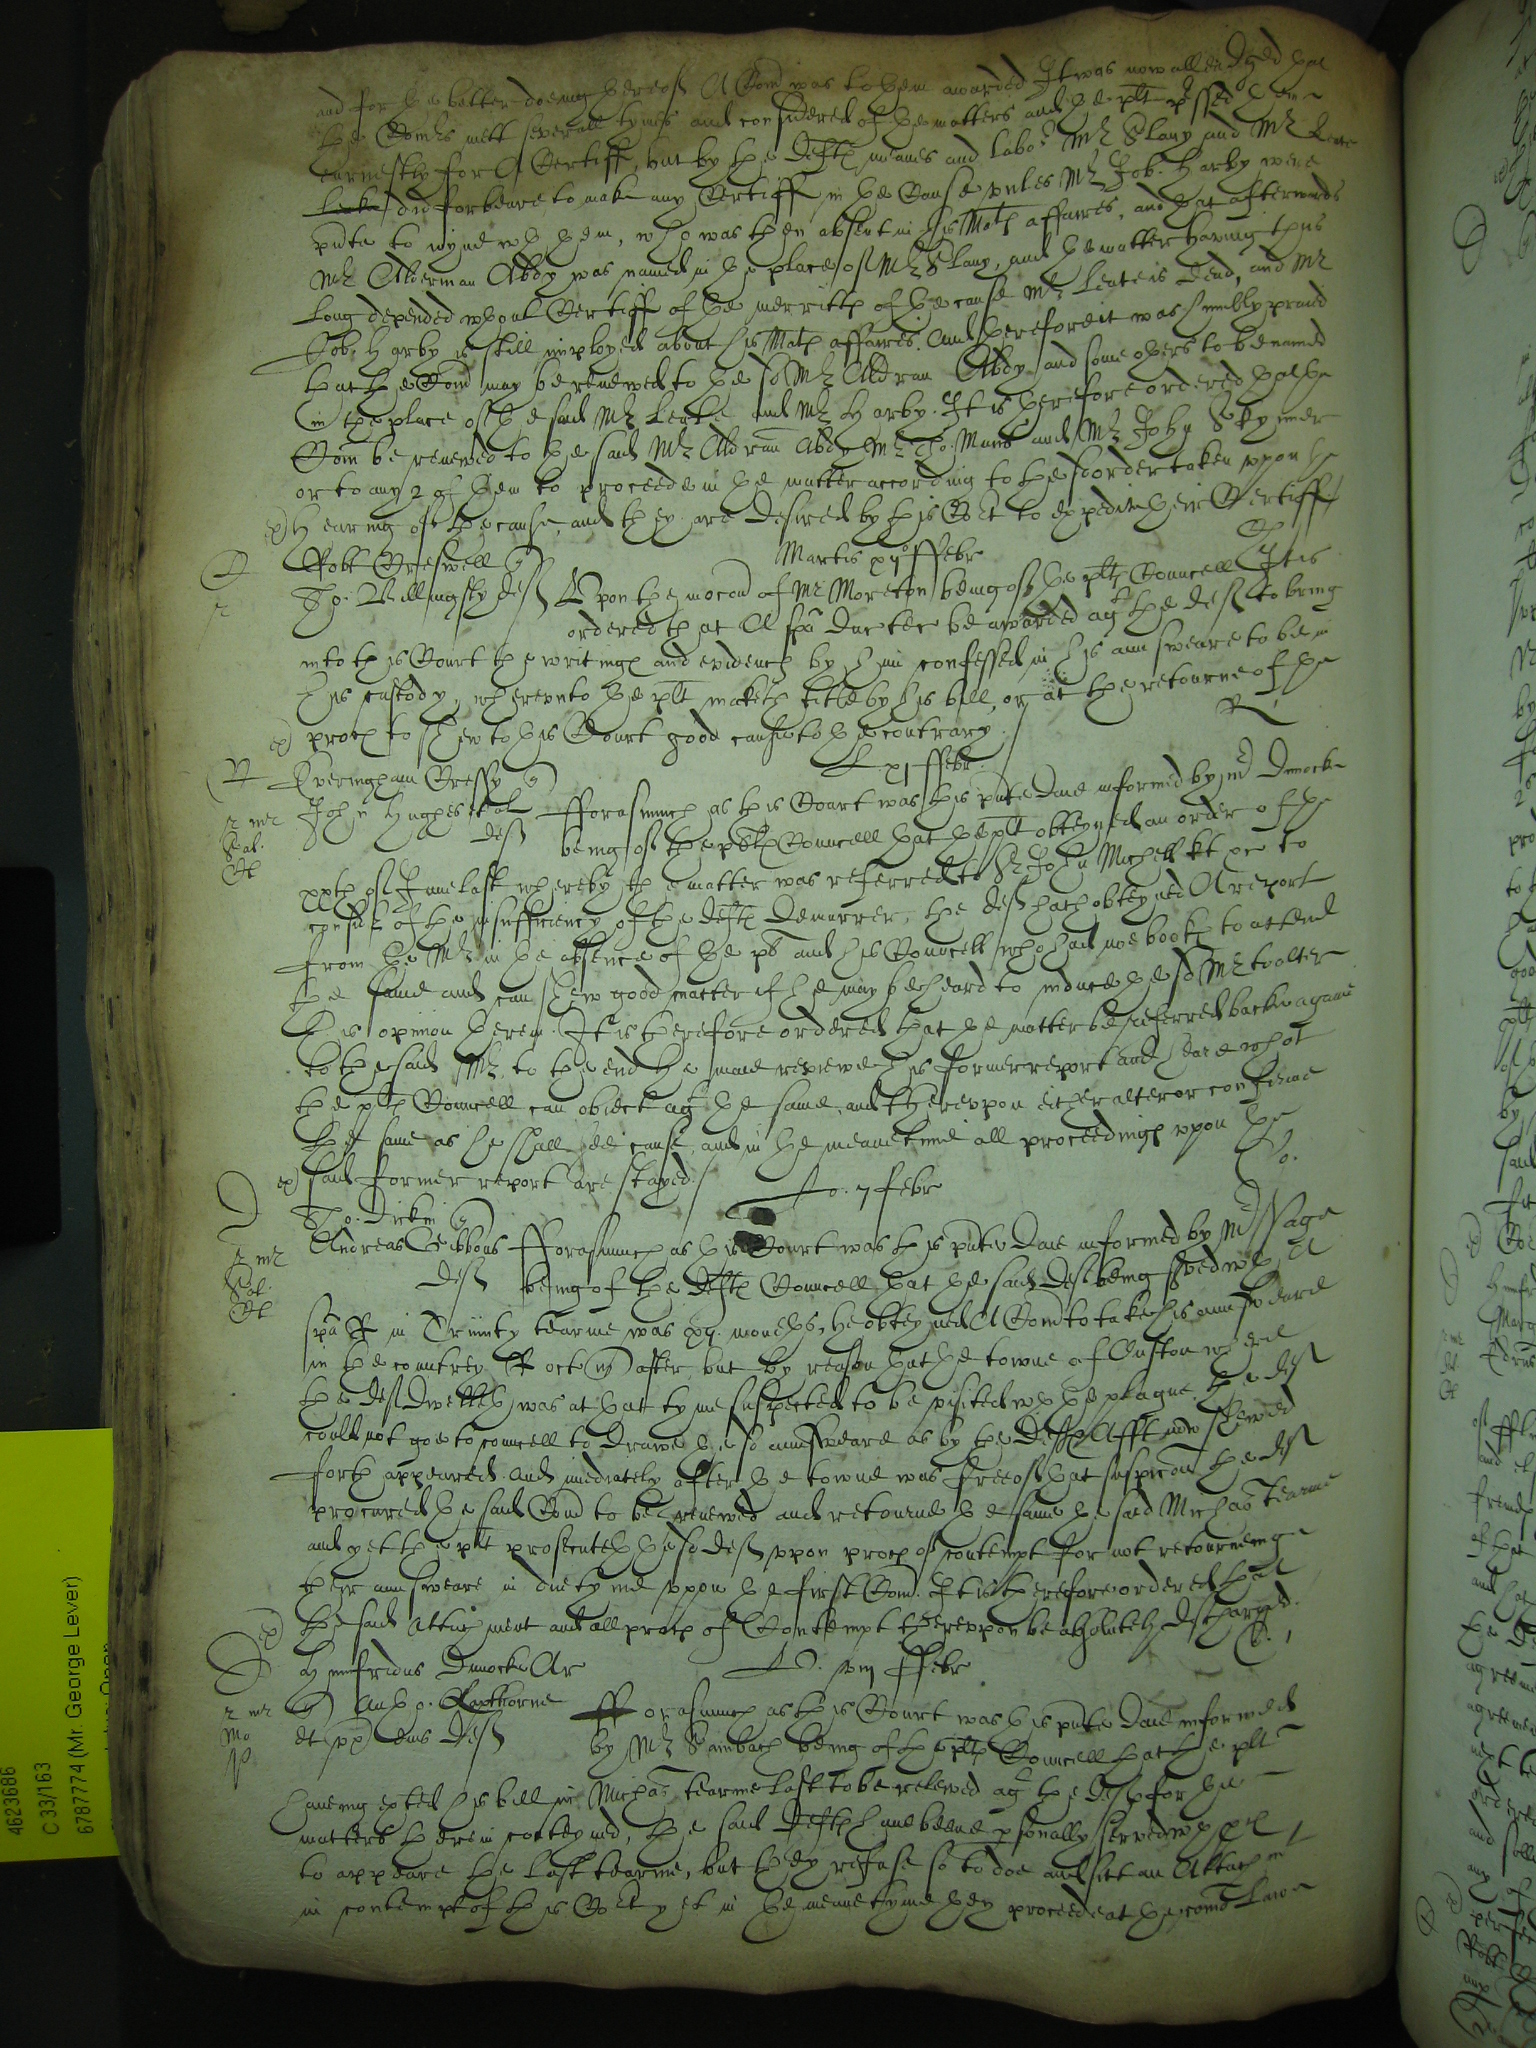 and for the better doeing hereof A Com̃ was to them awarded It was now alleadged that
the Com̃rs mett severall tymes and considered of the matters and the plt pssed them
earnestly for A Certiff, but by the defts meanes and labor Mr Slany and Mr Leate
did forbeare to make any Certiff in the Cause vnles Mr Job: Harby were
pnte to ioyne wth them, who was then absent in his Mats affaires, and that afterwards
Mr Alderman Abdy was named in the place of Mr Slany, and the matter having thus
long depended wthout Certiff of the merritts of the cause Mr Leate is dead, and Mr
Job: Harby is still imployed about his Mats affaires. And therefore it was humbly praied
that the Com̃ may be renewed to the sd Mr Aldran Abdy and some others to be named
in the place of the said Mr Leate and Mr Harby. It is therefore ordered that the
Com̃ be renewed to the said Mr Aldran Abdy Mr Tho: Muns and Mr John Skynner
or to any 2 of them to proceede in the matter according to the sd order taken vpon the
ex) hearing of the cause, and they are desired by this Cort to expedite their Certiff
Martis xijo ffebr
Robt Creswell
Tho: Billingsly deft Vpon the mocon of Mr Moreton being of the plts Councell It is
ordered that A spã duc tec be awarded agt the deft to bring
into this Court the writings and evidences by him confessed in his answeare to be in
his custody, wherevnto the plt maketh title by his bill, or at the retourne of the
ex) proces to shew to this Court good cause to the contrary
R
L xj ffebr
Everingham Cressy
John Hughes et al fforasmuch as this Court was this pnte daie informed by Mr Dmock
deft being of the plts Councell that the plt obteyned an order of the
xxth of June last whereby the matter was referred to Sr John Michell kt &c to
consider of the insufficiency of the defts demurrer, the deft hath obteyned A report
from the Mr in the absence of the plt and his Councell who had noe bookes to attend
the same and can shew good matter if he may be heard to induce the sd Mr to alter
his opinion therein. It is therefore ordered that the matter be referred backe againe
to the said Mr to the end he maie reviewe his former report and heare what
the plts Councell can obiect agt the same, and therevpon either alter or confirme
the same as he shall see cause, and in the meanetime all proceedings vpon the
ex) said former report are stayed
Jo. 7 Febr
Tho. Dickin
Andreas Gibbons fforasmuch as this Court was this pnte daie informed by Mr Page
deft being of the defts Councell that the said deft being served wth A
spã R in Trinity tearme was xij moneths, he obteyned A Com̃ to take his answeare
in the countrey R oct m after, but by reason that the towne of Aston where
the deft dwelleth was at that tyme suspected to be visited wth the plague, the deft
could not goe to councell to drawe the sd answeare as by the defts Afft now shewed
forth appeared. And imediately after the towne was free of that suspicon the deft
procured the said Com̃ to be renewed and retourned the same the said Michas tearme
and yet the plt prosecuteth the sd deft vpon proces of contempt for not retourneing
their answeare in due tyme vpon the first Com̃. It is therefore ordered that
ex) the said attachment and all proces of Contempt therevpon be absolutely discharged.
Humfridus Dimock Ar
Jo. viij ffebr
Clapthorne fforasmuch as this Court was this pnte daie informed
et vx eius deft by Mr Sambach being of the plts Councell that the plt
haueing exted his bill in Michas tearme last to be releived agt the defts for the
matters therein conteyned, the said defts haue beene psonally served wth pces
to appeare the last tearme, but they refuse so to doe and sitt an Attachmt
in contempt of this Cort yet in the meane tyme they proceede at the comõ Lawe
4623686
C 33/163
6787774 (Mr. George Lever)